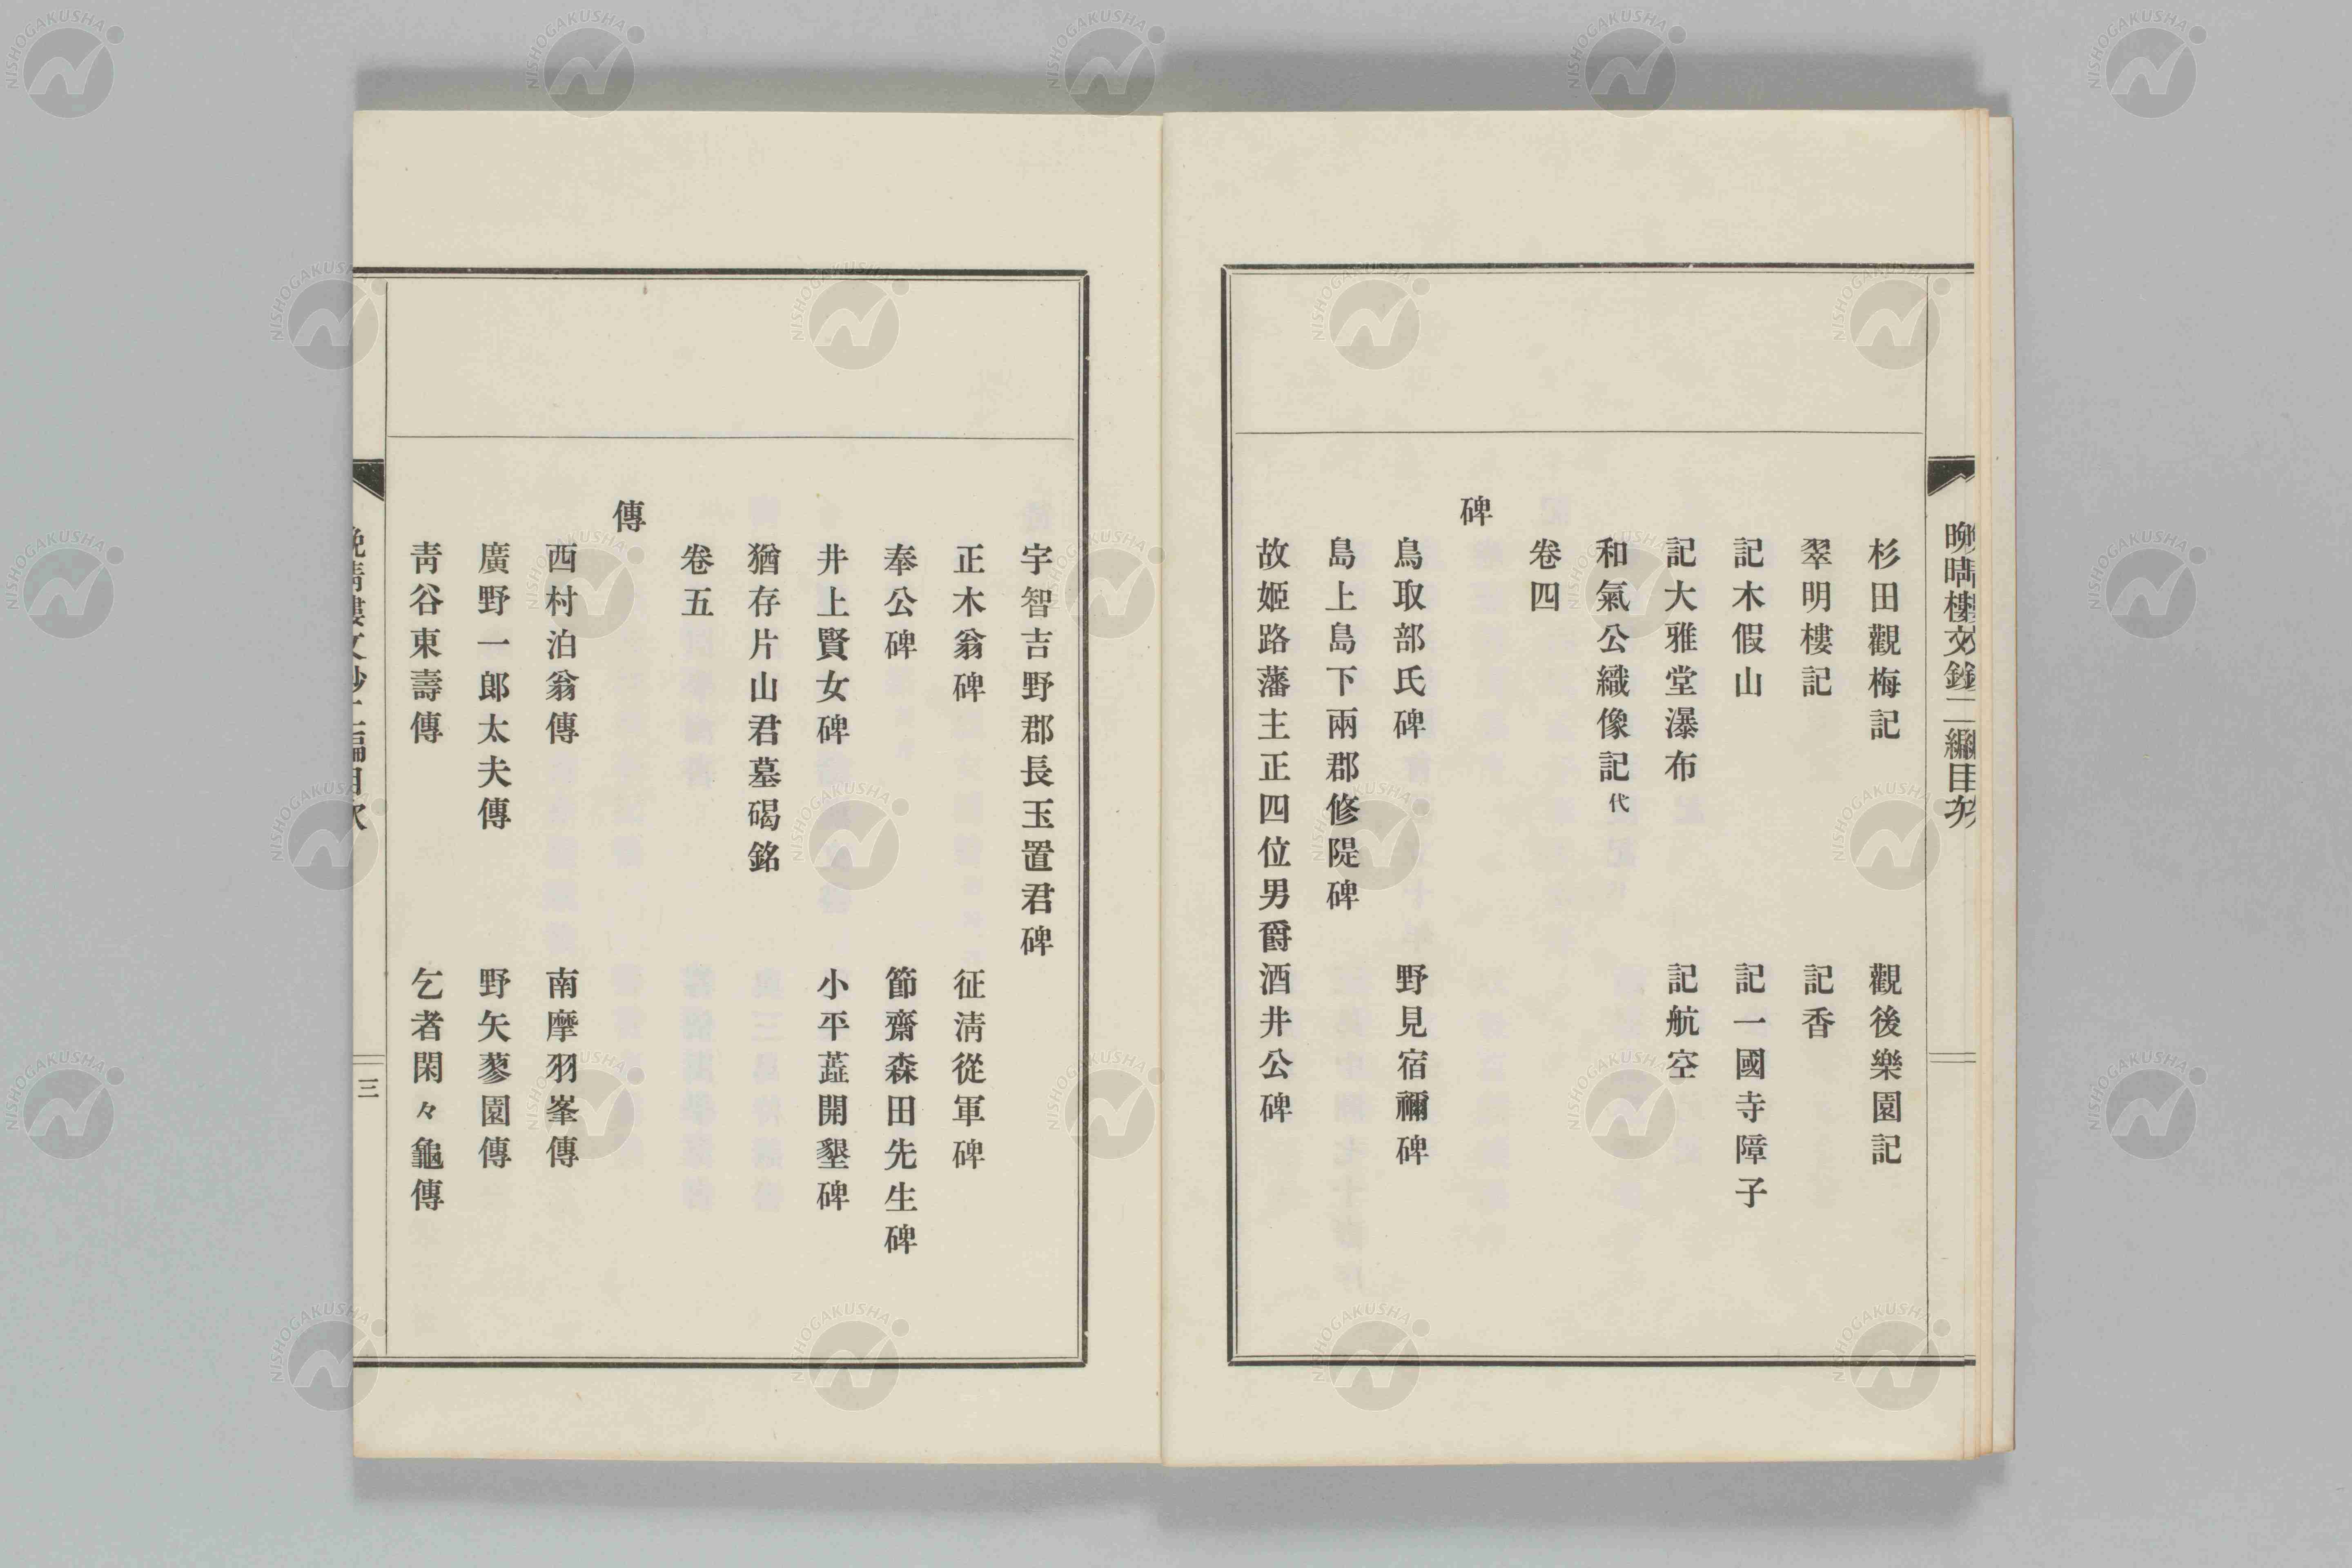 晚晴樓文鈔二編目次
杉田觀梅記 觀後樂園記
翠明樓記 記香
記木假山 記一國寺障子
記大雅堂瀑布 記航空
和氣公織像記 代
卷四
碑
鳥取部氏碑 野見宿禰碑
島上島下兩郡修隄碑
故姬路藩主正四位男爵酒井公碑
宇智吉野郡長玉置君碑
正木翁碑 征淸從軍碑
奉公碑 節齋森田先生碑
井上賢女碑 小平蓝開墾碑
猶存片山君墓碣銘
卷五
傳
西村泊翁傳 南摩羽峯傳
廣野一郎太夫傳 野矢蓼園傳
靑谷東壽傳 乞者閑々龜傳
晚晴樓文鈔二編目次
三
NISHOGAKUSHA